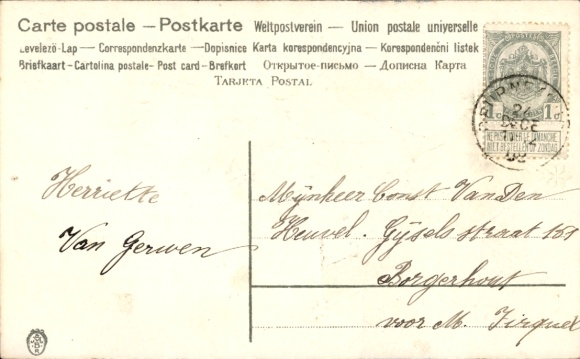 Carte postale — Postkarte Weltpostverein — Union postale universelle
Levelezö-Lap — Correspondenzkarte — Dopisnice Karta korespondencyjna — Korespondenční listek
Briefkaart - Cartolina postale - Post card - Brefkort Открытое-письмо — Дописна Карта
TARJETA POSTAL
1c 1c
NE PAS LIVRER LE DIMANCHE
NIET BESTELLEN OP ZONDAG
Henriette
Van Gerwen
Mijnheer Const VanDen
Heuvel. Gijsels straat 151
Borgerhout
voor M.